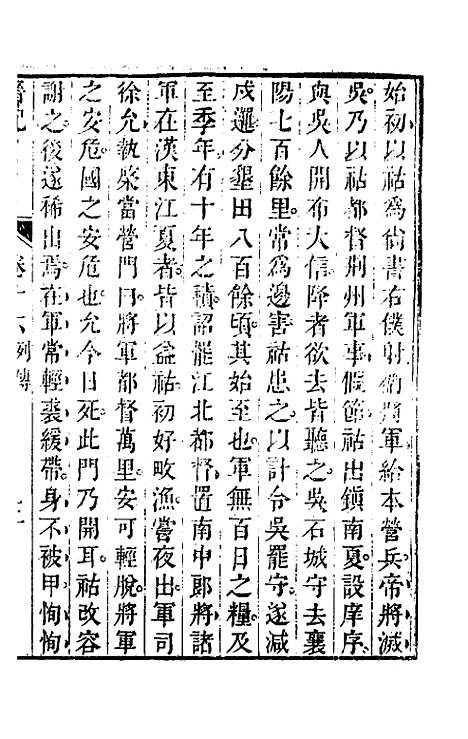 始初以祜為尚書右僕射衛將軍給本營兵帝將滅
吳乃以祜都督荊州軍事假節祜出鎮南夏設庠序
與吳人開布大信降者欲去皆聽之吳石城守去襄
陽七百餘里常為邊害祜患之以計令吳罷守遂減
戍邏分墾田八百餘頃其始至也軍無百日之糧及
至季年有十年之積詔罷江北都督置南中郎將諸
軍在漢東江夏者皆以益祜初好畋漁嘗夜出軍司
徐允執棨當營門曰將軍都督萬里安可輕脫將軍
之安危國之安危也允今日死此門乃開耳祜改容
謝之後遂稀出焉在軍常輕裘緩帶身不被甲恂恂
晉記 卷十六列傳